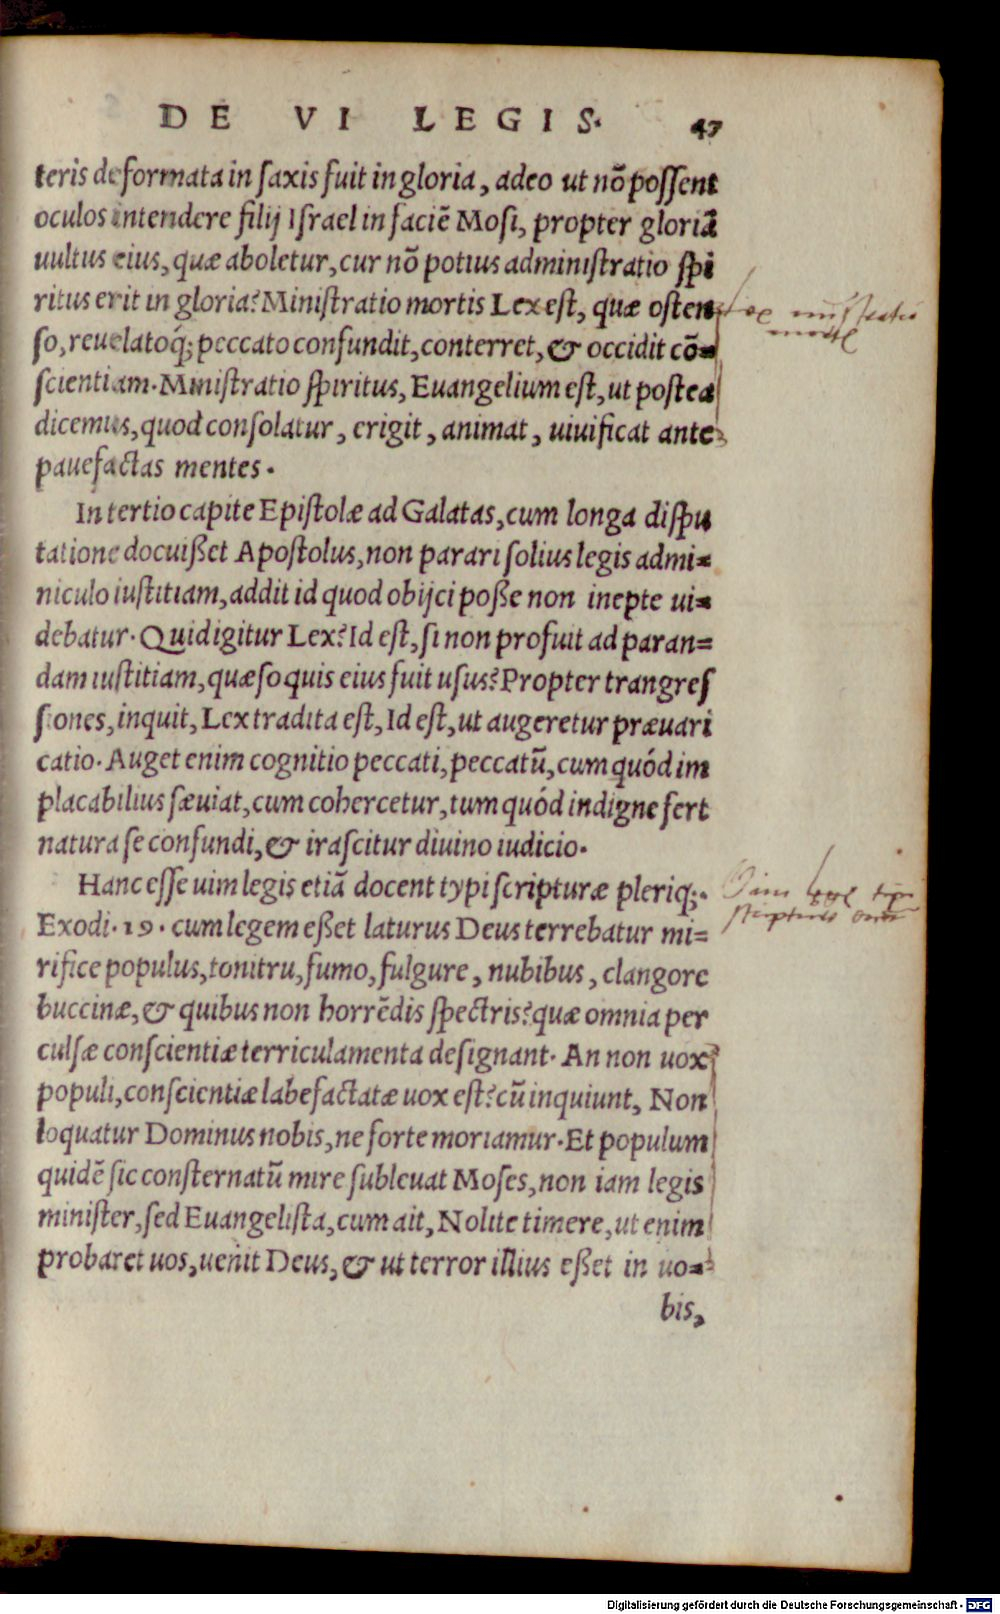 DE VI LEGIS. 47
teris deformata in ſaxis fuit in gloria, adeo ut nō poſſent
oculos intendere filij Iſrael in faciē Moſi, propter gloriā
uultus eius, quæ aboletur, cur nō potius adminiſtratio ſpi
ritus erit in gloria? Miniſtratio mortis Lex est, quæ oſten
ſo, reuelatoq́; peccato confundit, conterret, & occidit cō=
ſcientiam. Miniſtratio ſpiritus, Euangelium eſt, ut poſtea
dicemus, quod conſolatur, erigit, animat, uiuificat ante
pauefactas mentes.
In tertio capite Epiſtolæ ad Galatas, cum longa diſpu
tatione docuißet Apoſtolus, non parari ſolius legis admi=
niculo iuſtitiam, addit id quod obijci poße non inepte ui=
debatur. Quid igitur Lex? Id eſt, ſi non profuit ad paran=
dam iuſtitiam, quæſo quis eius fuit uſus? Propter trangreſ
ſiones, inquit, Lex tradita eſt, Id eſt, ut augeretur præuari
catio. Auget enim cognitio peccati, peccatū, cum quód im
placabilius ſæuiat, cum cohercetur, tum quód indigne fert
natura ſe confundi, & iraſcitur diuino iudicio.
Hanc eſſe uim legis etiā docent typi ſcripturæ pleriq;.
Exodi. 19. cum legem eßet laturus Deus terrebatur mi=
rifice populus, tonitru, fumo, fulgure, nubibus, clangore
buccinæ, & quibus non horrēdis ſpectris? quæ omnia per
culſæ conſcientiæ terriculamenta deſignant. An non uox
populi, conſcientiæ labefactatæ uox eſt? cū inquiunt, Non
loquatur Dominus nobis, ne forte moriamur. Et populum
quidē ſic conſternatū mire ſubleuat Moſes, non iam legis
miniſter, ſed Euangeliſta, cum ait, Nolite timere, ut enim
probaret uos, uenit Deus, & ut terror illius eßet in uo=
bis,
Digitalisierung gefördert durch die Deutsche Forschungsgemeinschaft - DFG